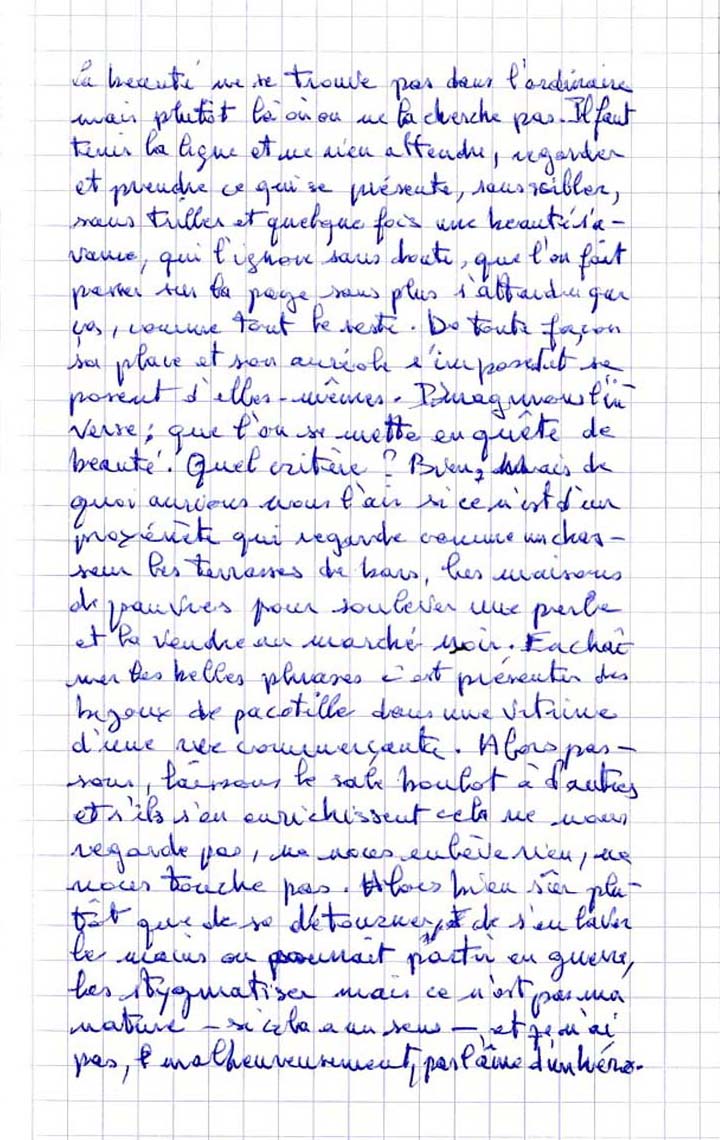 La beauté ne se trouve pas dans l'ordinaire
mais plutôt là où on ne la cherche pas. Il faut
tenir la ligne et ne rien attendre, regarder
et prendre ce qui se présente, sans cibler,
sans triller et quelque fois une beauté s'a-
vance, qui l'ignore sans doute, que l'on fait
passer sur la page sans plus s'attendre que
ça, comme tout le reste. De toute façon
sa place et son auréole s'imposent se
posent d'elles-mêmes. Imaginons l'in
verse; que l'on se mette en quête de
beauté. Quel critère ? Bien, mais de
quoi aurions nous l'air si ce n'est d'un
proxénète qui regarde comme un chas-
seur les terrasses de bars, les maisons
de pauvres pour soulever une perle
et la vendre au marché noir. Enchaî
ner les belles phrases c'est présenter des
bijoux de pacotille dans une vitrine
d'une rue commerçante. Alors pas-
sons, laissons le sale boulot à d'autres
et s'ils s'en enrichissent cela ne nous
regarde pas, ne nous enlève rien, ne
nous touche pas. Alors bien sûr plu-
tôt que de se détourner, de s'en laver
les mains on pourrait partir en guerre,
les stygmatiser mais ce n'est pas ma
nature – si cela a un sens – et je n'ai
pas, malheureusement, pas l'âme d'un héros.